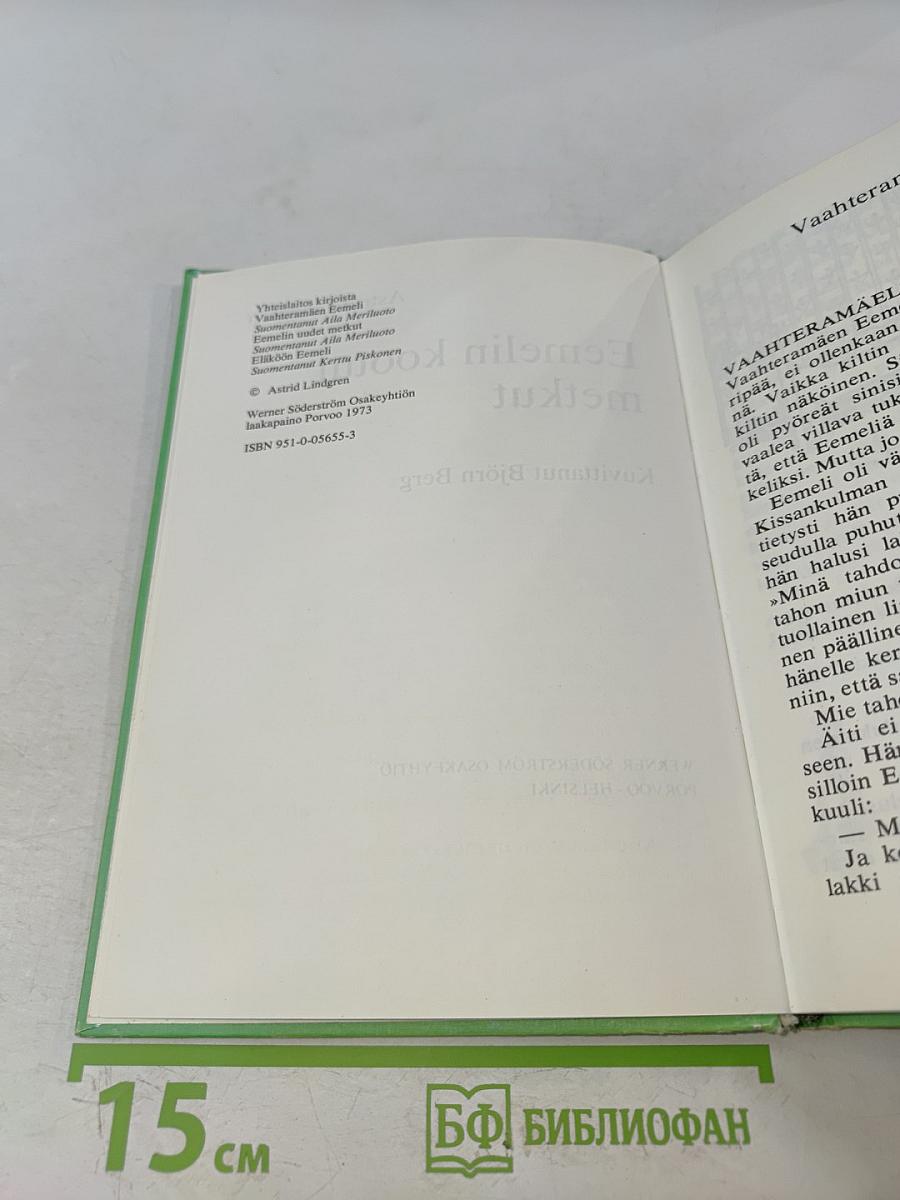 Yhteislaitos kirjoista
Vaahteramäen Eemeli
Suomentanut Aila Meriluoto
Eemelin uudet metkut
Suomentanut Aila Meriluoto
Eläköön Eemeli
Suomentanut Kerttu Piskonen
© Astrid Lindgren
Werner Söderström Osakeyhtiön
laakapaino Porvoo 1973
ISBN 951-0-05655-3
Eemelin kootut
metkut
Kuvittanut Björn Berg
WERNER SÖDERSTRÖM OSAKEYHTIÖ
PORVOO · HELSINKI
Vaahteram
VAAHTERAMÄEL
Vaahteramäen Eeme
ripää, ei ollenkaan
nä. Vaikka kiltin
kiltin näköinen. S
oli pyöreät sinisi
vaalea villava tuk
tä, että Eemeliä
keliksi. Mutta jo
Eemeli oli vä
Kissankulman
tietysti hän p
seudulla puhut
hän halusi la
»Minä tahdo
tahon miun
tuollainen li
nen päälline
hänelle ker
niin, että s
Mie taho
Äiti ei
seen. Hän
silloin E
kuuli:
— M
Ja k
lakki
15 см
БФ БИБЛИОФАН